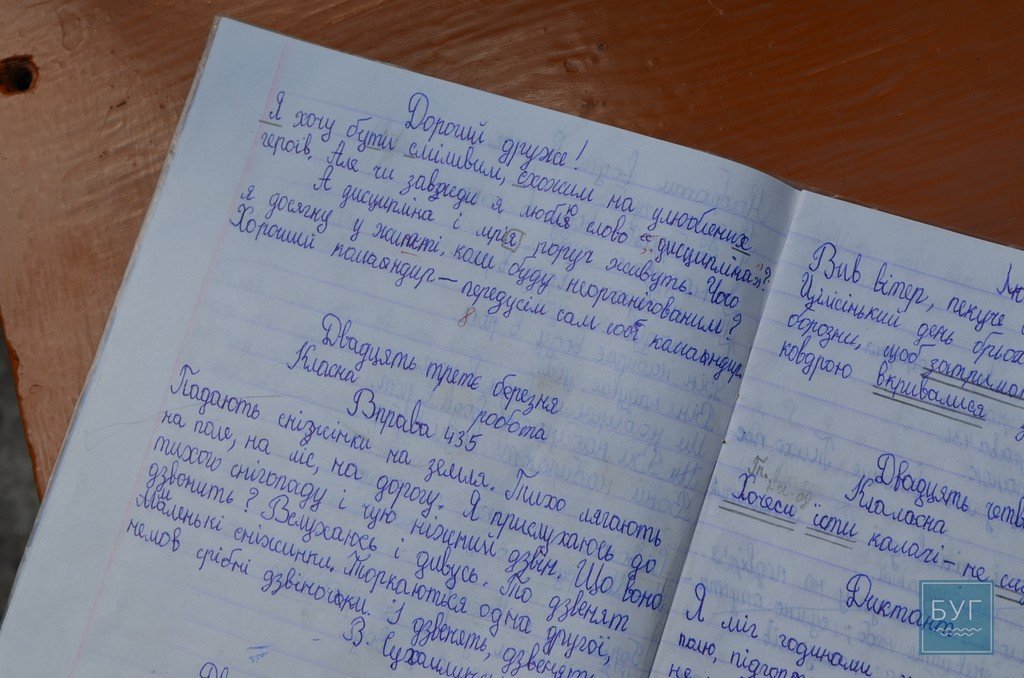 Дорогий друже!
Я хочу бути сміливим, схожим на улюблених
героїв. Але чи завжди я люблю слово "дисципліна"?
А дисципліна і мрія поруч живуть. Чого
я досягну у житті, коли буду неорганізованим?
Хороший командир — передусім сам собі командир.
8
Двадцять третє березня
Класна робота
Вправа 435
Падають сніжинки на земля. Тихо лягають
на поле, на ліс, на дорогу. Я прислухаюсь до
тихого снігопаду і чую ніжний дзвін. Що воно
дзвонить? Вслухаюсь і дивусь. То дзвенят
маленькі сніжинки. Торкаються одна другої,
немов срібні дзвіночки. І дзвенять, дзвенять
В.
Вив вітер, пекуче
Цілісінький день
борозни, щоб
ковдрою вкривалися
Двадцять четве
Класна
Хочеш їсти калачі – не
Диктант
Я міг годинами
полю,
БУГ